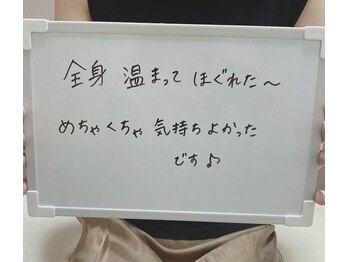 全身 温まって ほぐれた〜
めちゃくちゃ 気持ちよかった
です♪